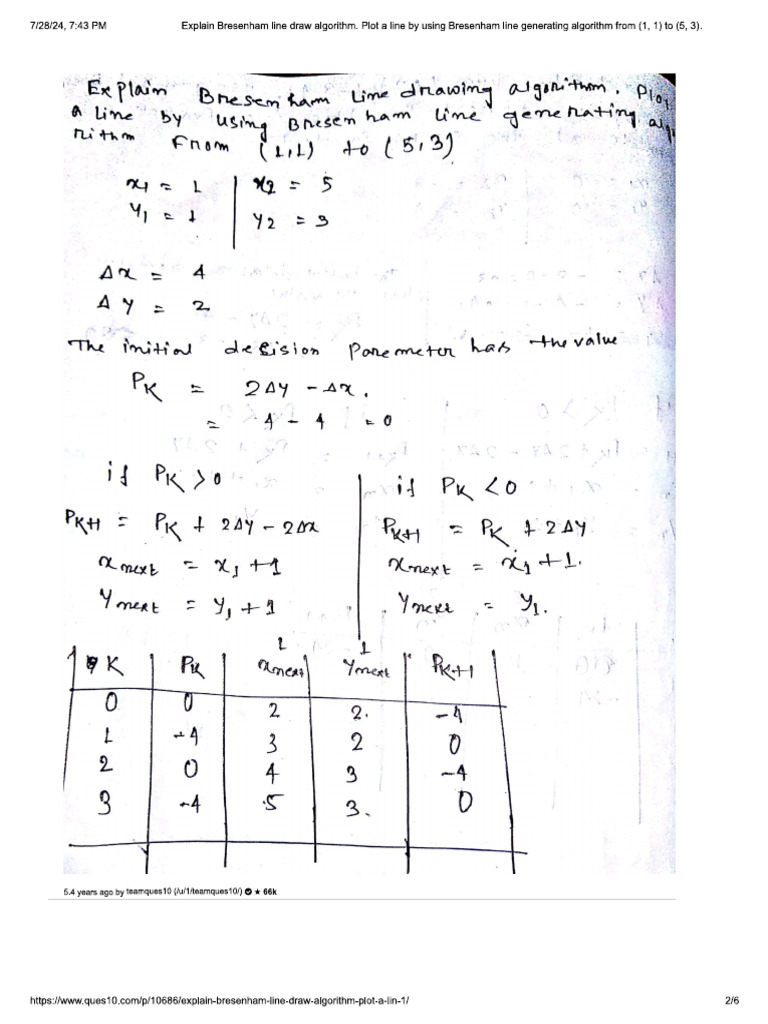 7/28/24, 7:43 PM Explain Bresenham line draw algorithm. Plot a line by using Bresenham line generating algorithm from (1, 1) to (5, 3).
Explain Bresenham Line drawing algorithm. Plot
a Line by using Bresenham line generating algo
rithm From (1,1) to (5,3)
x1 = 1 | x2 = 5
y1 = 1 | y2 = 3
Δx = 4
Δy = 2
The initial decision Paremeter has the value
PK = 2Δy - Δx.
= 4 - 4 = 0
if PK > 0 | if PK < 0
PK+1 = PK + 2Δy - 2Δx | PK+1 = PK + 2Δy
xnext = x1 + 1 | xnext = x1 + 1.
Ynext = y1 + 1 | Ynext = y1.
1 1
K | PK | xnext | Ynext | PK+1
0 | 0 | 2 | 2. | -4
1 | -4 | 3 | 2 | 0
2 | 0 | 4 | 3 | -4
3 | -4 | 5 | 3. | 0
5.4 years ago by teamques10 (/u/1/teamques10/) ★ 66k
https://www.ques10.com/p/10686/explain-bresenham-line-draw-algorithm-plot-a-lin-1/ 2/6